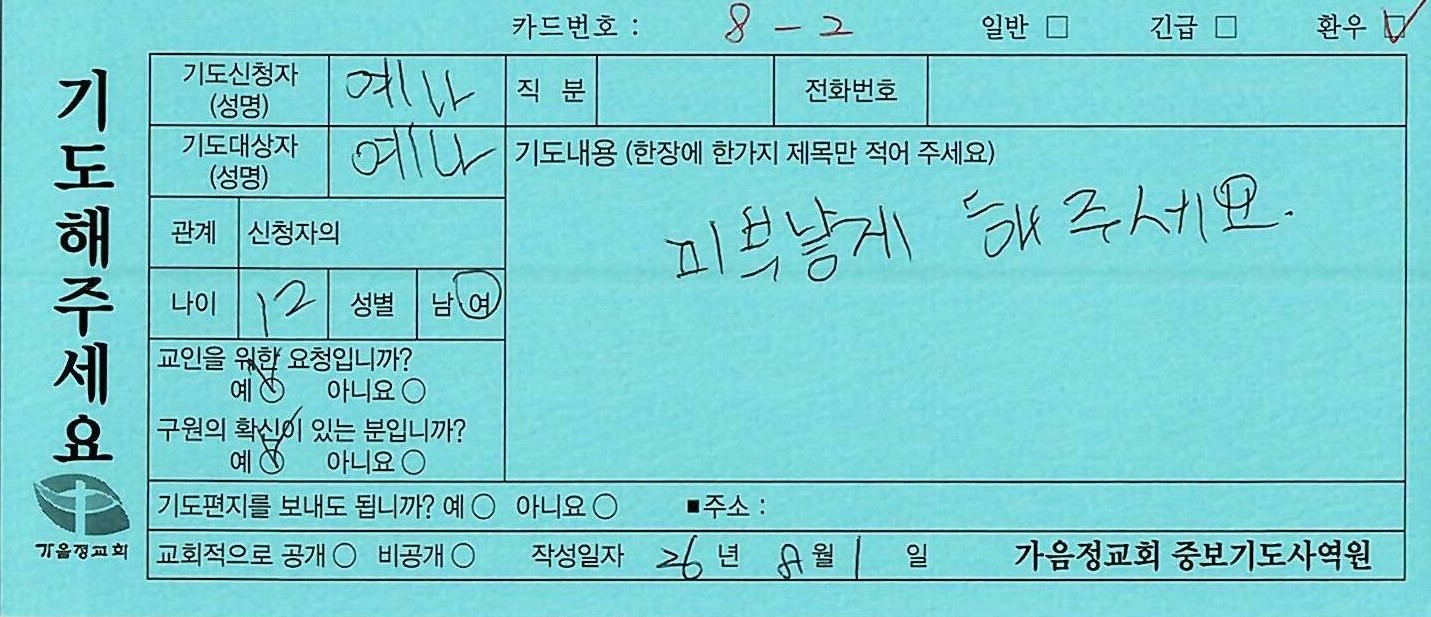 카드번호 : 8 - 2 일반 □ 긴급 □ 환우 ☑
기도해주세요
가음정교회
기도신청자 (성명) 예나 직 분 전화번호
기도대상자 (성명) 예나
기도내용 (한장에 한가지 제목만 적어 주세요)
피부낳게 해주세요.
관계 신청자의
나이 12 성별 남 여
교인을 위한 요청입니까?
예 ○ 아니요 ○
구원의 확신이 있는 분입니까?
예 ○ 아니요 ○
기도편지를 보내도 됩니까? 예 ○ 아니요 ○ ■주소 :
교회적으로 공개 ○ 비공개 ○ 작성일자 26 년 8 월 1 일 가음정교회 중보기도사역원